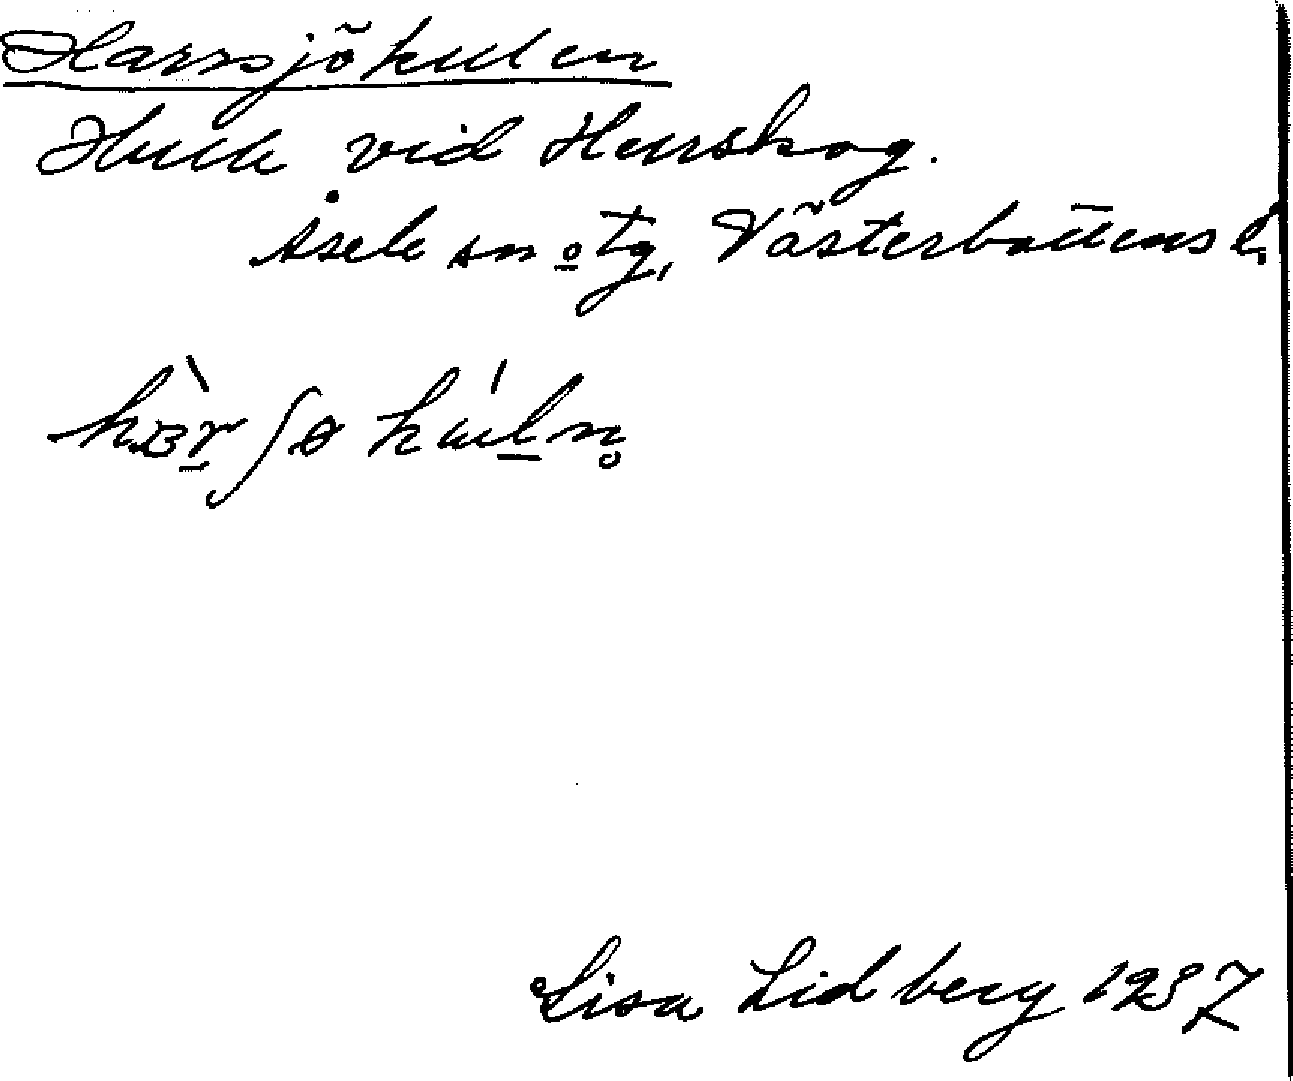 Harrsjökullen
Kulle vid Herrskog.
Åsele sn o tg, Västerbottens l.
Lisa Lidberg 1937